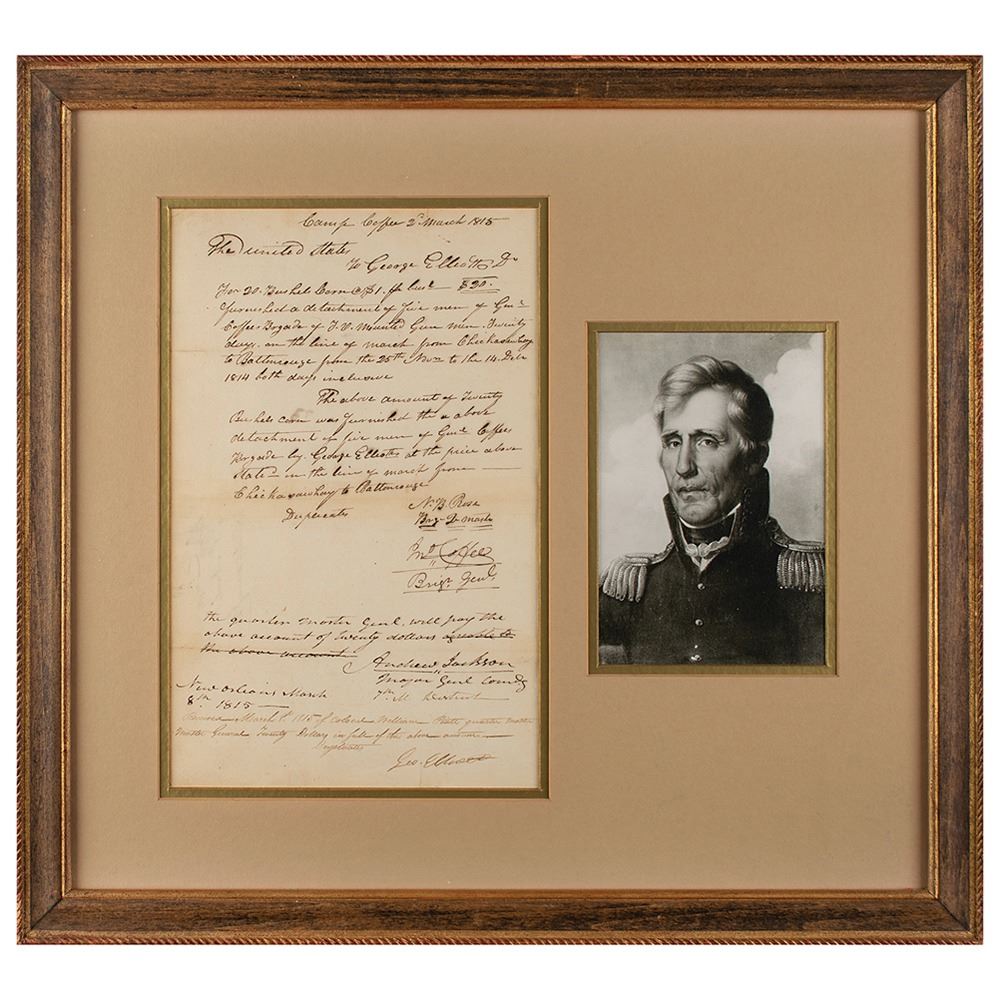 Camp Coffee 2d March 1815
The United States
To George Elliott Dr
For 20 Bushels Corn @ $1. pr busl $20.
furnished a detachment of five men of Genl
Coffees Brgade of T. V. Mounted Gun men. Twenty
days. on the line of march from Chickasawhay
to Battonrouge from the 25th Novr to the 14. Decr
1814 both days inclusive
The above amount of Twenty
Bushels corn was furnished the above
detachment of five men of Genl Coffees
Brgade by George Elliott at the price above
stated in the line of march from
Chickasawhay to Battonrouge
Duplicates
N. B. Rose
Brg. Qr master
Jno Coffee
Brigr Genl
The quarter master Genl. will pay the
above account of twenty dollars agreable to
the above account
Andrew Jackson
Major Genl Comdg
7th M District
New Orleans March
8th 1815
March 1815 of Colonel William Piatt quarter master
Master General Twenty Dollars in full of the above account
Duplicates
Geo. Elliott